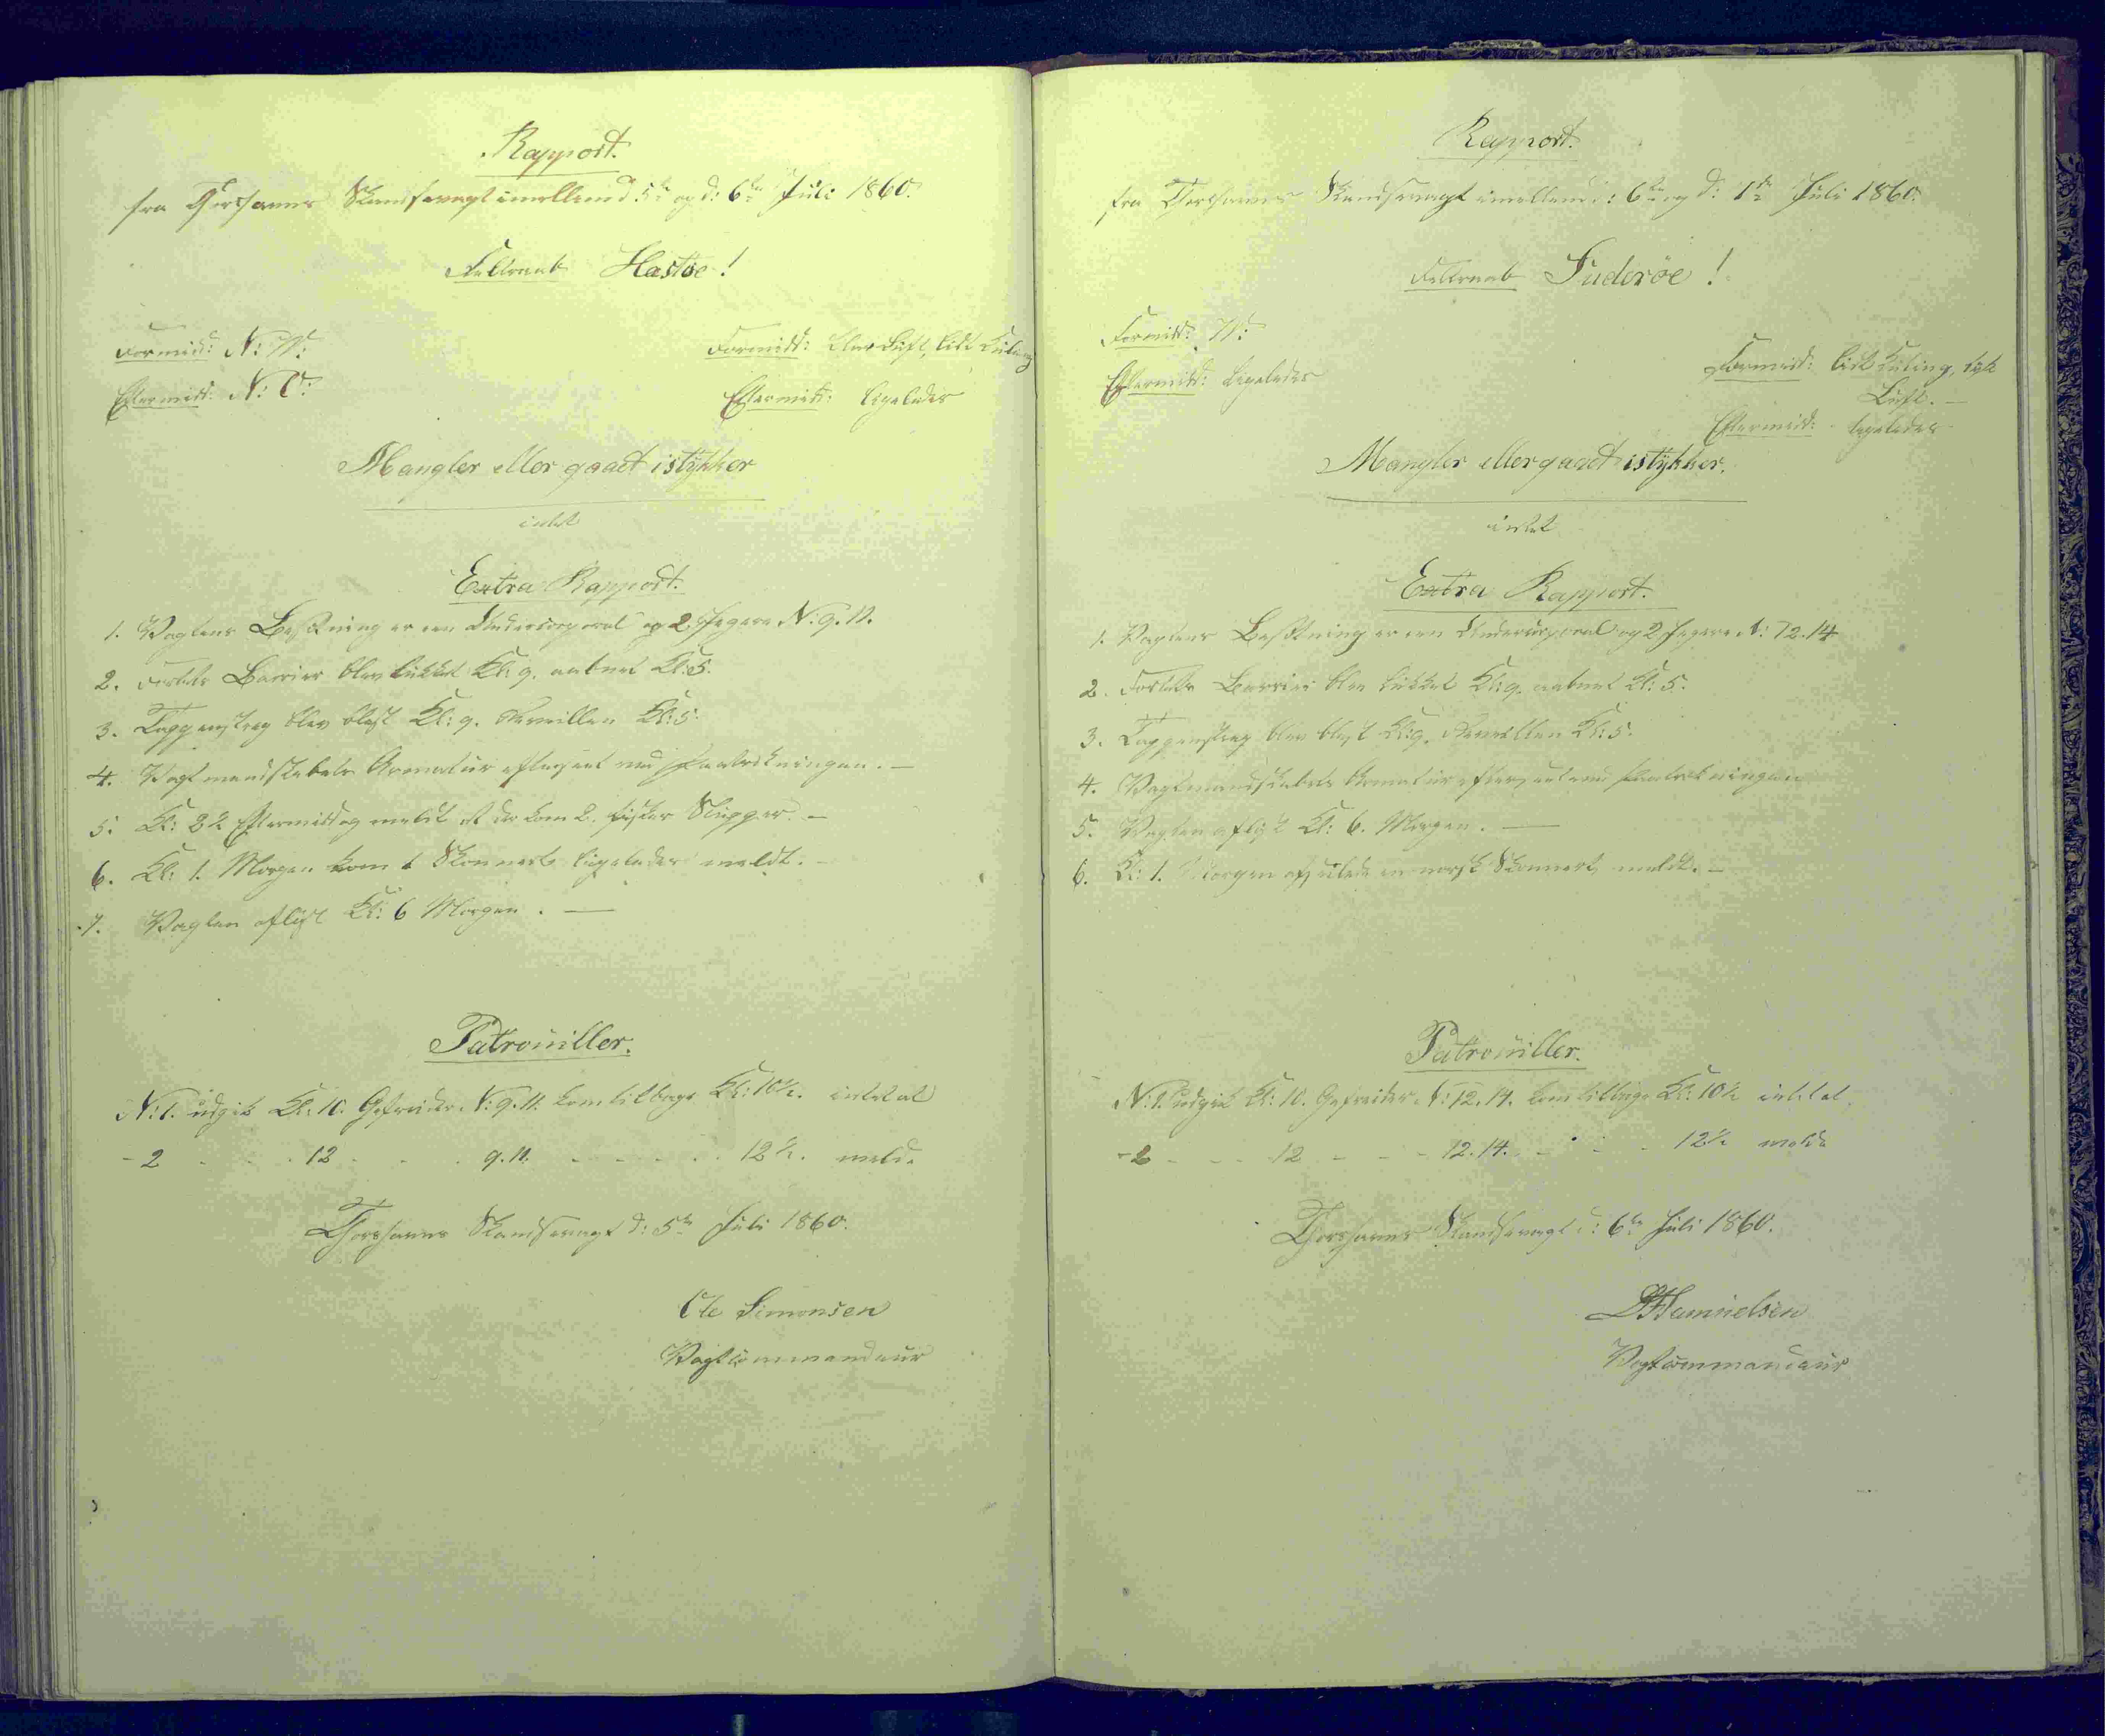 Rapport.
fra Thorshavns Skandsevagt imellem d: 5te og d: 6te Juli 1860.
Feltraab Hastøe!
Formidd: N: W:
Eftermidd: N: O:
Formidd: klar Luft, lidt Kuling
Eftermidd: ligeledes
Mangler eller gaaet istykker
intet
Extra Rapport.
1. Vagtens Besætning er een Undercorporal og 2 Jægere N: 9. 11.
2. Fortets Barrier blev lukket Kl: 9. aabnet Kl: 5.
3. Tappenstreg blev blæst Kl: 9. Reveillen Kl: 5.
4. Vagtmandskabets Armatur efterseet ved Paatrækningen. —
5. Kl: 8½ Eftermiddag meldt at der kom 2. fisker Slupper. —
6. Kl: 1. Morgen kom 1 Skonnert ligeledes meldt. —
7. Vagten afløst Kl: 6 Morgen. —
Patrouiller.
N: 1. udgik Kl: 10. Gefreider N: 9. 11. kom tilbage Kl: 10½. intet at
- 2 - - - 12 - - - 9. 11. - - - - - 12½. melde
Thorshavns Skandsevagt d: 5te Juli 1860.
Ole Simonsen
Vagtcommandeur
Rapport.
fra Thorshavns Skandsevagt imellem d: 6te og d: 7de Juli 1860.
Feltraab Suderöe!
Formidd: W:
Eftermidd: ligeledes
Formidd: lidt Kuling, tyk
Luft. —
Eftermidd: ligeledes
Mangler eller gaaet istykker.
intet
Extra Rapport.
1. Vagtens Besætning er een Undercorporal og 2 Jægere N: 12. 14
2. Fortets Barrier blev lukket Kl: 9. aabnet Kl: 5.
3. Tappenstreg blev blæst Kl: 9. Reveillen Kl: 5.
4. Vagtmandskabets Armatur efterseet ved Paatrækningen
5. Vagten afløst Kl: 6. Morgen. —
6. Kl: 1. Morgen afseilede en norsk Skonnert meldt. —
Patrouiller.
N: 1. udgik Kl: 10. Gefreider N: 12. 14. kom tilbage Kl: 10½ intet at
- 2 - - - 12 - - - 12. 14. - - - 12½ melde
Thorshavns Skandsevagt d: 6te Juli 1860.
Samuelsen
Vagtcommandeur